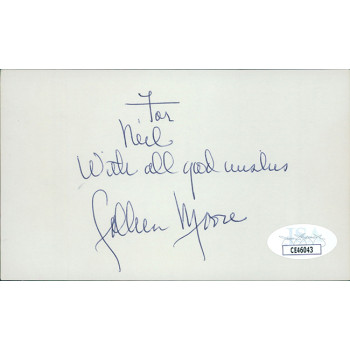 For
Neil
With all good wishes
Colleen Moore
CE46043